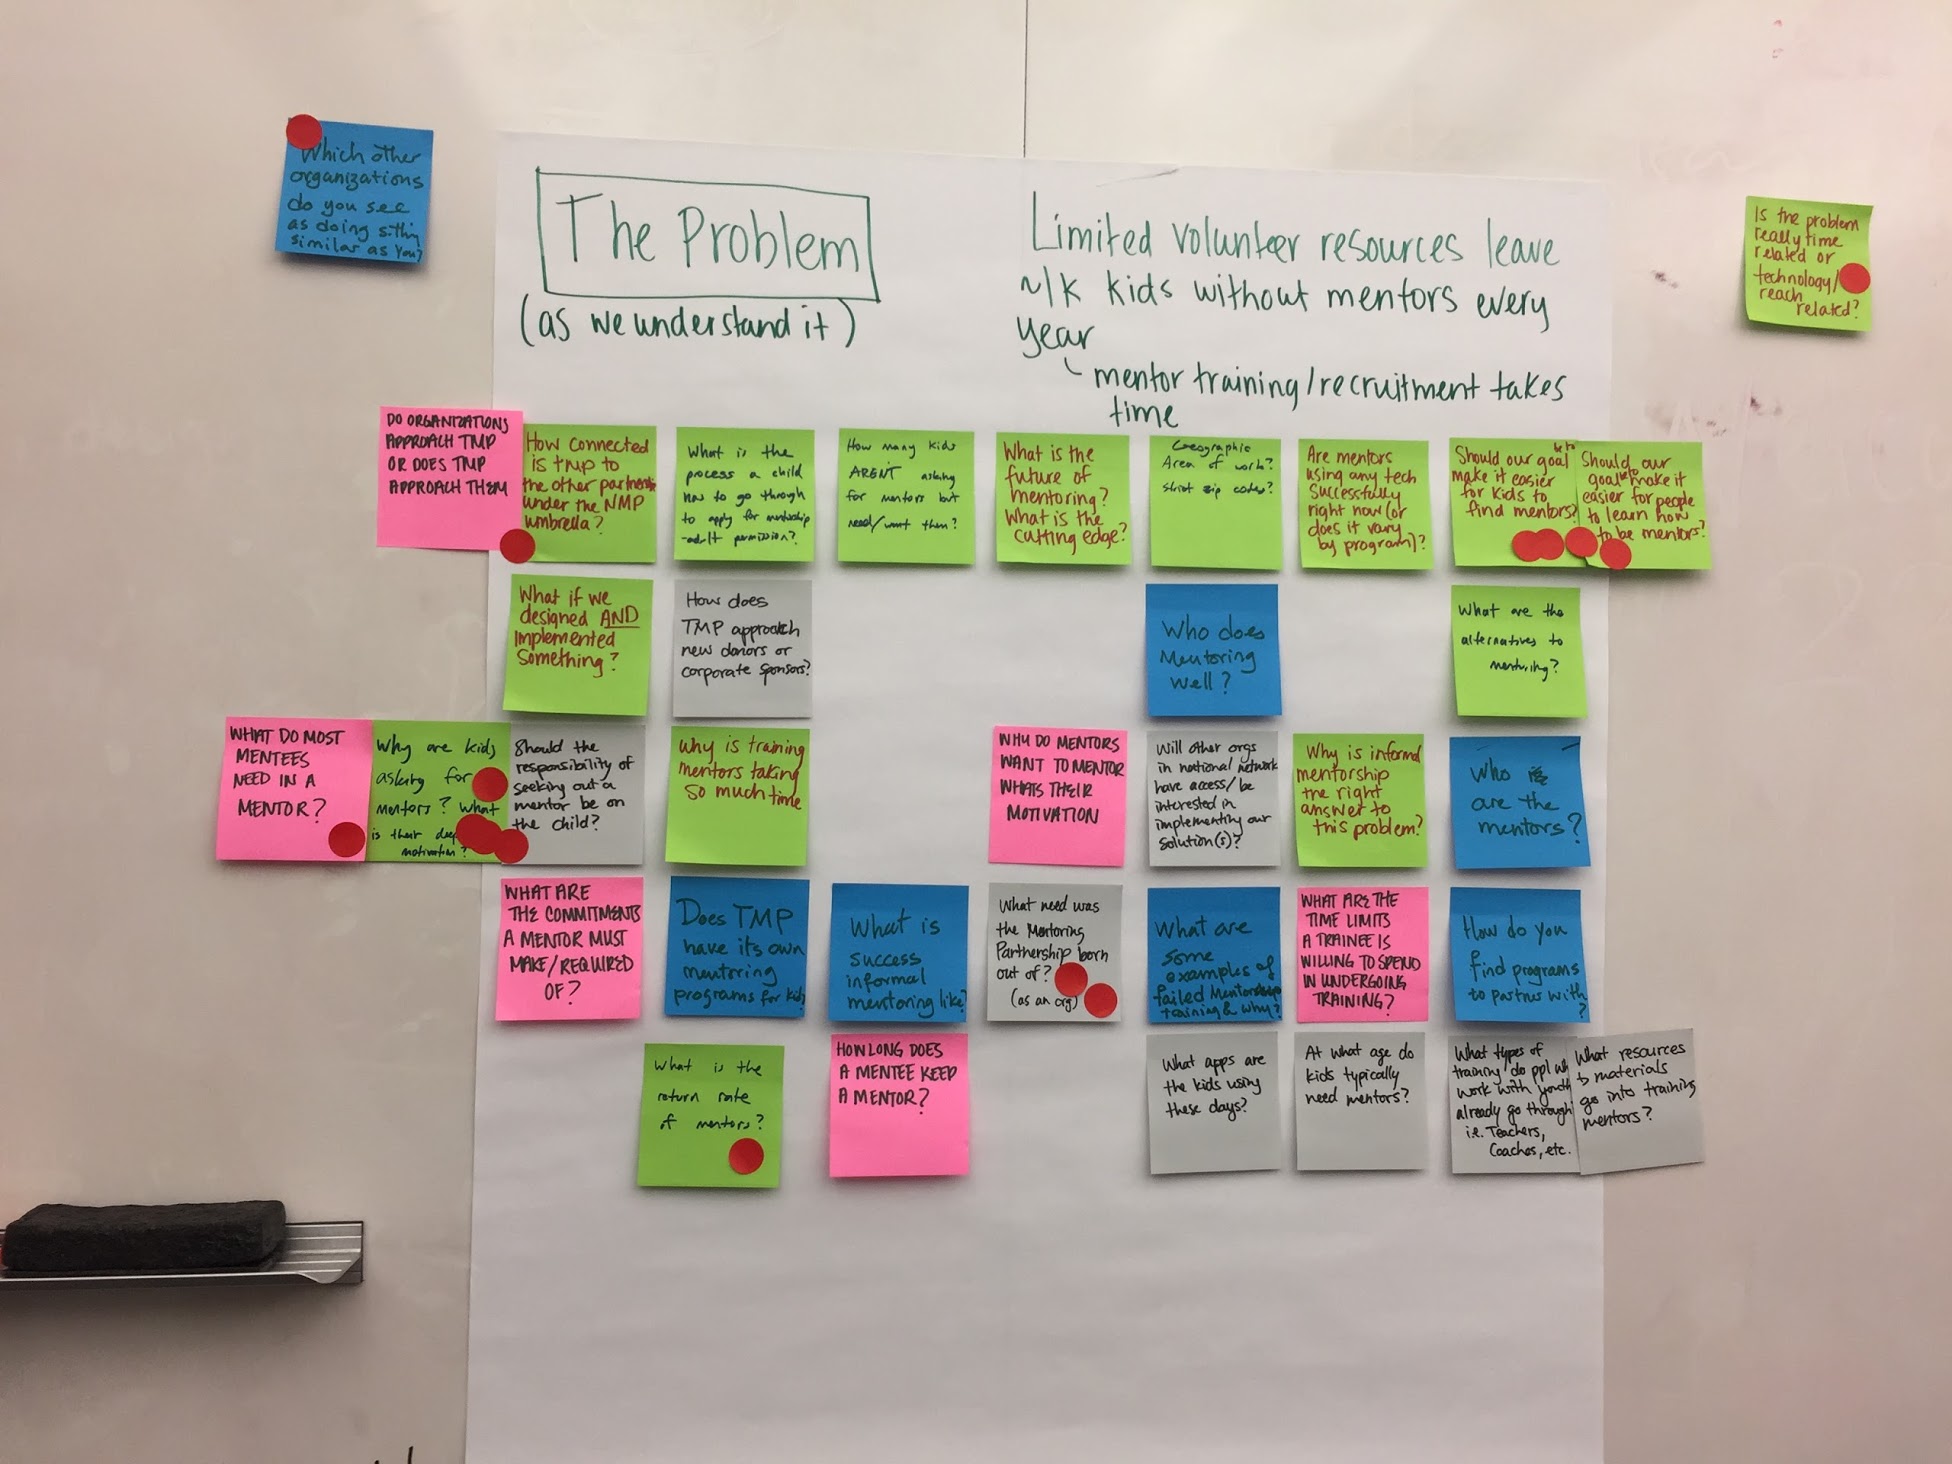 Which other
organizations
do you see
as doing s.thing
similar as you?
The Problem
(as we understand it)
Limited volunteer resources leave
~1k kids without mentors every
year
mentor training/recruitment takes
time
Is the problem
really time
related or
technology/
reach
related?
DO ORGANIZATIONS
APPROACH TMP
OR DOES TMP
APPROACH THEM
How connected
is TMP to
the other partners
under the NMP
umbrella?
What is the
process a child
has to go through
to apply for mentorship
-adult permission?
How many kids
AREN'T asking
for mentors but
need/want them?
What is the
future of
mentoring?
What is the
cutting edge?
Geographic
Area of work?
strict zip codes?
Are mentors
using any tech
successfully
right now (or
does it vary
by program)?
Should our goal be to
make it easier
for kids to
find mentors?
Should our
goal be to make it
easier for people
to learn how
to be mentors?
What if we
designed AND
implemented
something?
How does
TMP approach
new donors or
corporate sponsors?
Who does
Mentoring
well?
What are the
alternatives to
mentoring?
WHAT DO MOST
MENTEES
NEED IN A
MENTOR?
Why are kids
asking for
mentors? What
is their deep
motivation?
Should the
responsibility of
seeking out a
mentor be on
the child?
Why is training
mentors taking
so much time
WHY DO MENTORS
WANT TO MENTOR
WHATS THEIR
MOTIVATION
Will other orgs
in national network
have access/be
interested in
implementing our
solution(s)?
Why is informal
mentorship
the right
answer to
this problem?
Who
are the
mentors?
WHAT ARE
THE COMMITMENTS
A MENTOR MUST
MAKE/REQUIRED
OF?
Does TMP
have its own
mentoring
programs for kids
What is
success
informal
mentoring like?
What need was
the Mentoring
Partnership born
out of?
(as an org)
What are
some
examples of
failed Mentorship
training & why?
WHAT ARE THE
TIME LIMITS
A TRAINEE IS
WILLING TO SPEND
IN UNDERGOING
TRAINING?
How do you
find programs
to partner with?
What is the
return rate
of mentors?
HOW LONG DOES
A MENTEE KEEP
A MENTOR?
What apps are
the kids using
these days?
At what age do
kids typically
need mentors?
What types of
training do ppl who
work with youth
already go through
i.e. Teachers,
Coaches, etc.
What resources
& materials
go into training
mentors?